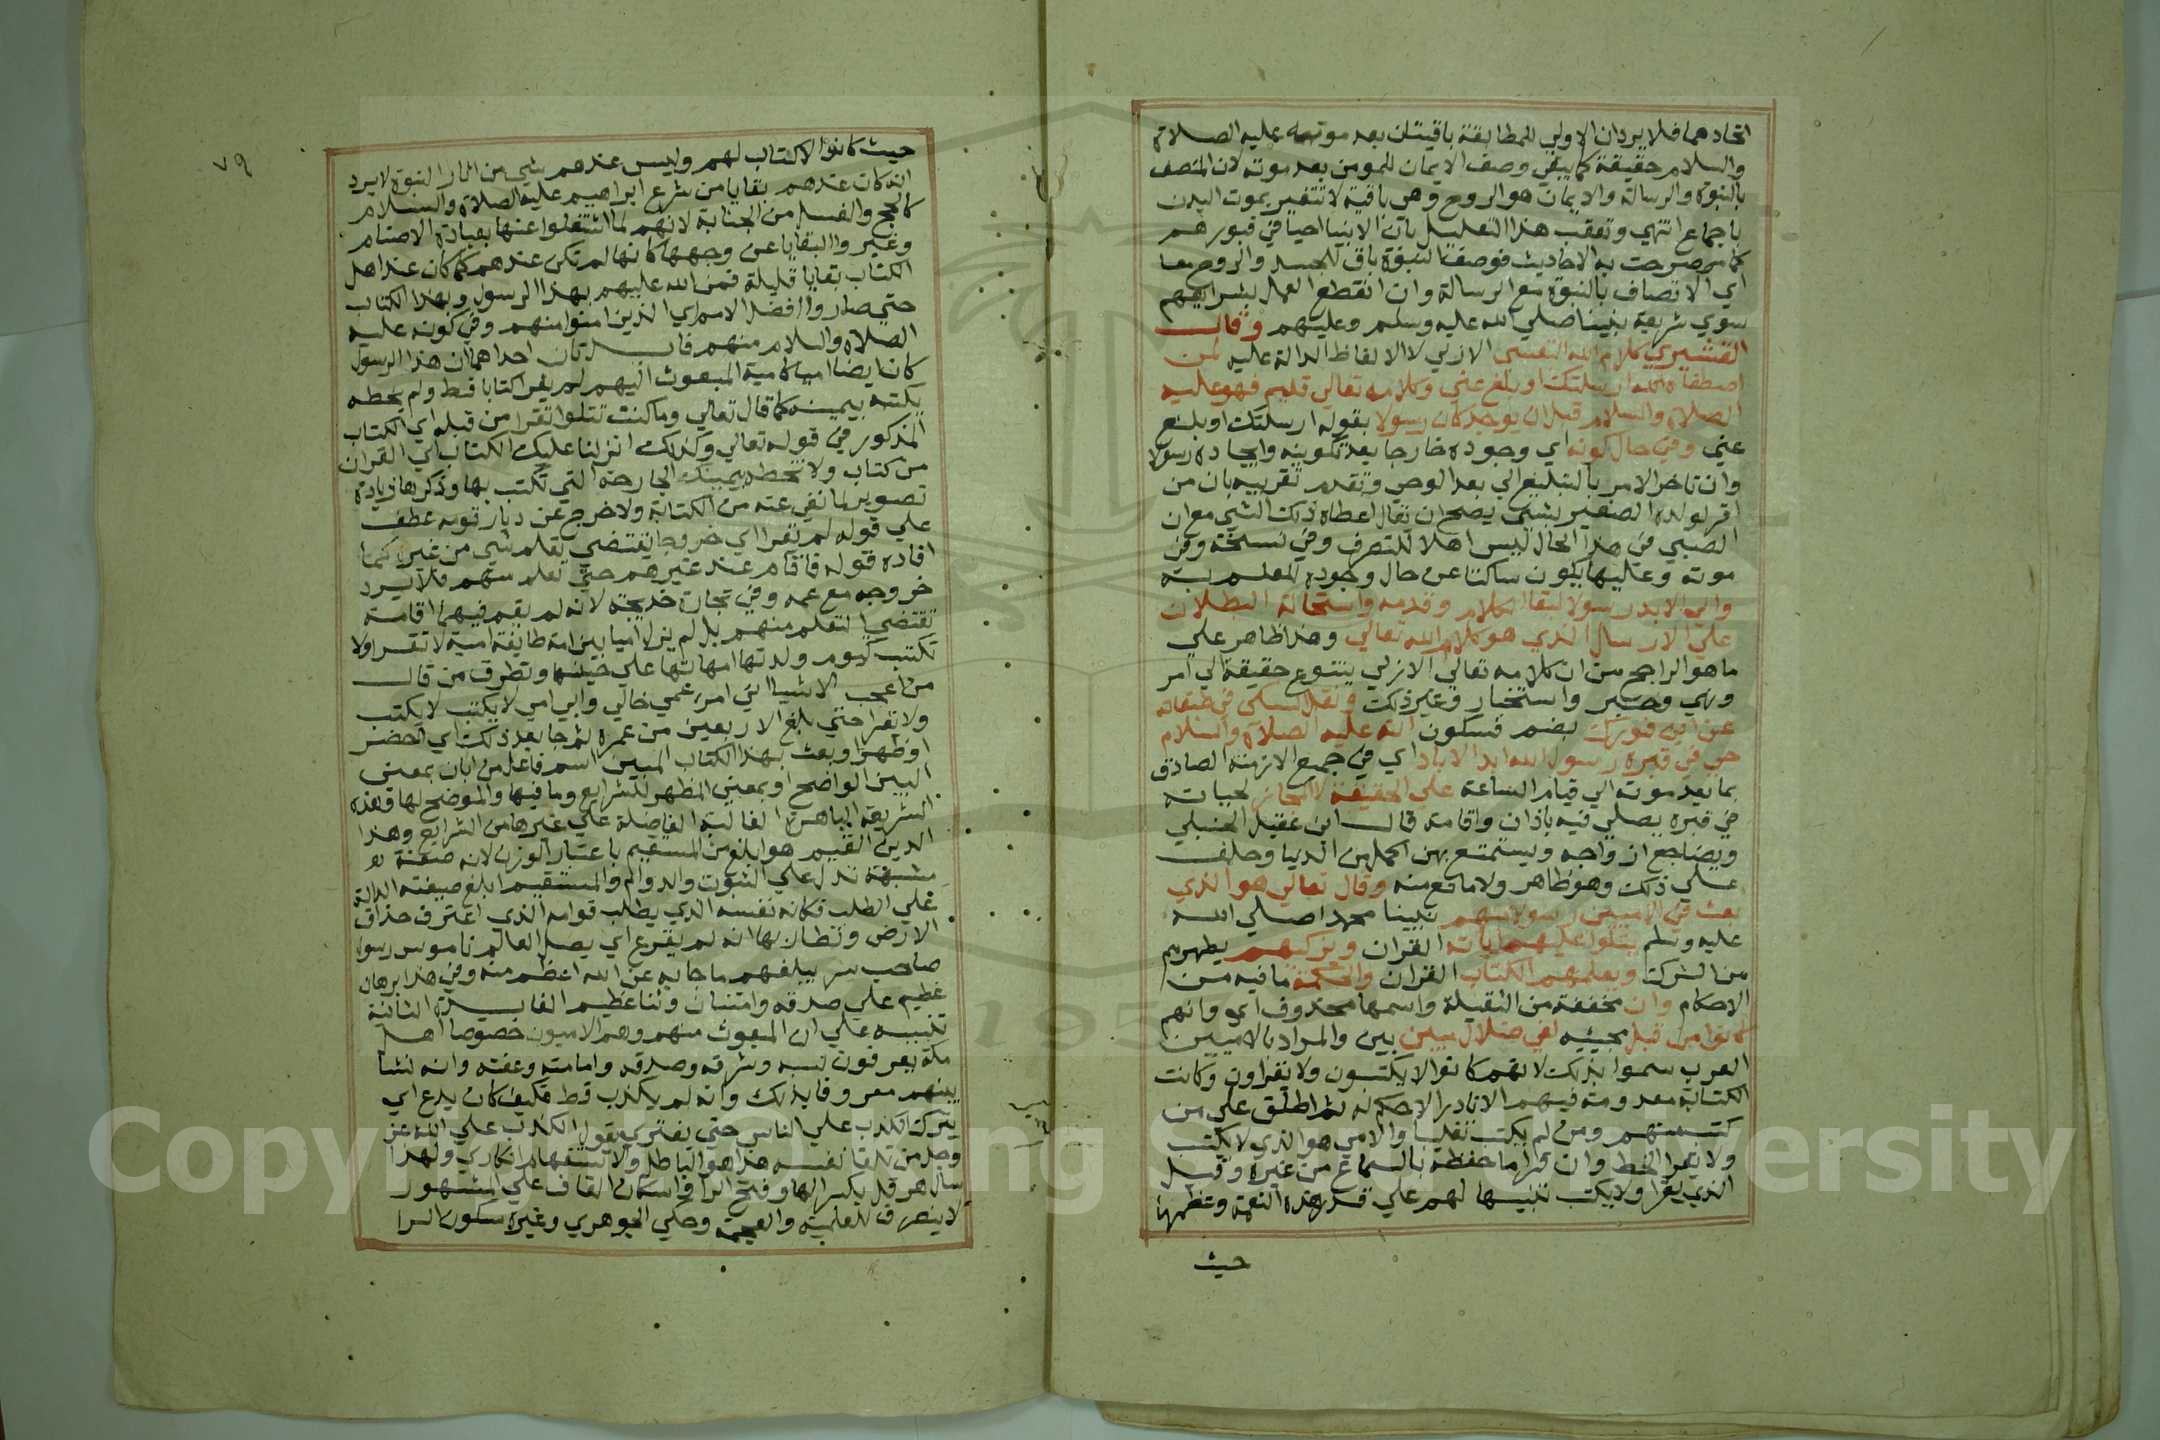 اتحادهما فلا يردان الاولي للمطابقة باقيتان بعد موته عليه الصلاة
والسلام حقيقة كما يبقي وصف الايمان للمومن بعد موته لان المتصف
بالنبوة والرسالة والايمان هو الروح وهي باقية لا تتغير بموت البدن
باجماع انتهي وتعقب هذا التعليل بان الانبيا احيا في قبورهم
كما صرحت به الاحاديث فوصف النبوة باق للجسد والروح معا
اي الاتصاف بالنبوة مع الرسالة وان انقطع العمل بشرايعهم
سوي شريعة نبينا صلي الله عليه وسلم وعليهم وقال
القشيري كلام الله النفسي الازلي لا الالفاظ الدالة عليه لمن
اصطفاه الله ارسلتك او بلغ عني وكلامه تعالي قديم فهو عليه
الصلاة والسلام قبل ان يوجد كان رسولا بقوله ارسلتك او بلغ
عني وفي حال كونه اي وجوده خارجا بعد تكوينه وايجاده رسولا
وان تاخر الامر بالتبليغ الي بعد الوحي وتقدم تقريبه بان من
اقر لولده الصغير بشي يصح ان يقال اعطاه ذلك الشي مع ان
الصبي في هذا الحال ليس اهلا للتصرف وفي نسخة وفي
موته وعليها يكون ساكتا عن حال وجوده للعلم به
والي الابد رسولا لبقا الكلام وقدمه واستحالة البطلان
علي الارسال الذي هو كلام الله تعالي وهذا ظاهر علي
ما هو الراجح من ان كلامه تعالي الازلي يتنوع حقيقة الي امر
ونهي وخبر واستخبار وغير ذلك ونقل السبكي في طبقاته
عن ابن فورك بضم فسكون انه عليه الصلاة والسلام
حي في قبره رسول الله ابد الاباد اي في جميع الازمنة الصادق
بما بعد موته الي قيام الساعة علي الحقيقة لا المجاز لحياته
في قبره يصلي فيه باذان واقامة قال ابن عقيل الحنبلي
ويضاجع ازواجه ويستمتع بهن اكمل من الدنيا وحلف
علي ذلك وهو ظاهر ولا مانع منه وقال تعالي هو الذي
بعث في الاميين رسولا منهم نبينا محمدا صلي الله
عليه وسلم يتلوا عليهم اياته القران ويزكيهم يطهرهم
من الشرك ويعلمهم الكتاب القران والحكمة ما فيه من
الاحكام وان مخففة من الثقيلة واسمها محذوف اي وانهم
كانوا من قبل مجيئه لفي ضلال مبين بين والمراد بالاميين
العرب سموا بذلك لانهم كانوا لا يكتبون ولا يقراون وكانت
الكتابة معدومة فيهم الا نادرا لا حكم له ثم اطلق علي من
كتب منهم ومن لم يكتب تغليبا والامي هو الذي لا يكتب
ولا يقرا الخط وان قرا ما حفظه بالسماع من غيره وقيل
الذي يقرا ولا يكتب تنبيها لهم علي قدر هذه النعمة وعظمها
حيث
٧٩
حيث كانوا لا كتاب لهم وليس عندهم شي من اثار النبوة لا يرد
انه كان عندهم بقايا من شرع ابراهيم عليه الصلاة والسلام
كالحج والغسل من الجنابة لانهم لما اشتغلوا عنها بعبادة الاصنام
وغيروا البقايا عن وجهها كانها لم تكن عندهم كما كان عند اهل
الكتاب بقايا قليلة فمن الله عليهم بهذا الرسول وبهذا الكتاب
حتي صاروا افضل الامم اي الذين امنوا منهم وفي كونه عليه
الصلاة والسلام منهم فايدتان احداهما ان هذا الرسول
كان ايضا اميا كامية المبعوث اليهم لم يقرا كتابا قط ولم يخطه
يكتبه بيمينه كما قال تعالي وما كنت تتلوا تقرا من قبله اي الكتاب
المذكور في قوله تعالي وكذلك انزلنا عليك الكتاب اي القران
من كتاب ولا تخطه بيمينك الجارحة التي تكتب بها وذكرها زيادة
تصوير لما نفي عنه من الكتابة ولا خرج عن ديار قومه عطف
علي قوله لم يقرا اي خروجا يقتضي تعلم شي من غيره كما
افاده قوله فاقام عند غيرهم حتي تعلم منهم فلا يرد
خروجه مع عمه وفي تجارة خديجة لانه لم يقم فيهما اقامة
تقتضي التعلم منهم بل لم يزل اميا بين امة طايفة امية لا تقرا ولا
تكتب كيوم ولدتها امهاتها علي وتطرف من قال
من اعجب الاشيا اني امرء عمي خالي وابي امي لا يكتب لا يكتب
ولا تقرا حتي بلغ الاربعين من عمره ثم جا بعد ذلك اي احضر
او ظهر وبعث بهذا الكتاب المبين اسم فاعل من ابان بمعني
البين الواضح او بمعني المظهر للشرايع وما فيها والموضح لها وهذه
الشريعة الباهرة الغالبة الفاضلة علي غيرها من الشرايع وهذا
الدين القيم هو ابلغ من المستقيم باعتبار الوزن لانه صفة
مشبهة تدل علي الثبوت والدوام والمستقيم ابلغ صيغته الدالة
علي الطلب فكانه نفسه الذي يطلب قوامه الذي اعترف حذاق
الارض ونظارها انه لم يقرع اي يصل العالم ناموس رسول
صاحب سر يبلغهم ما جا به عن الله اعظم منه وفي هذا برهان
عظيم علي صدقه وامتنان وثنا عظيم الفايدة الثانية
تنبيه علي ان المبعوث منهم وهم الاميون خصوصا اهل
مكة يعرفون نسبه وشرفه وصدقه وامامته وعفته وانه نشا
بينهم معروفا بذلك وانه لم يكذب قط فكيف كان يدع اي
يترك الكذب علي الناس حتي يفتري يقول الكذب علي الله عز
وجل من تلقا نفسه هذا هو الباطل والاستفهام انكاري ولهذا
سال هرقل بكسر الها وفتح الرا فاسكان القاف علي المشهور
لا ينصرف للعلمية والعجمة وحكي الجوهري وغيره سكون الرا